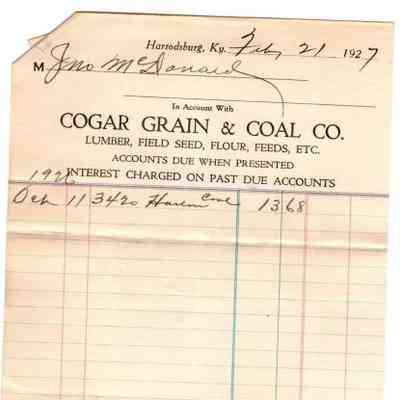 Harrodsburg, Ky. Feb 21 1927
M Jno McDonald
In Account With
COGAR GRAIN & COAL CO.
LUMBER, FIELD SEED, FLOUR, FEEDS, ETC.
ACCOUNTS DUE WHEN PRESENTED
INTEREST CHARGED ON PAST DUE ACCOUNTS
1926
Oct 11 3420 Harlan Coal 13 68